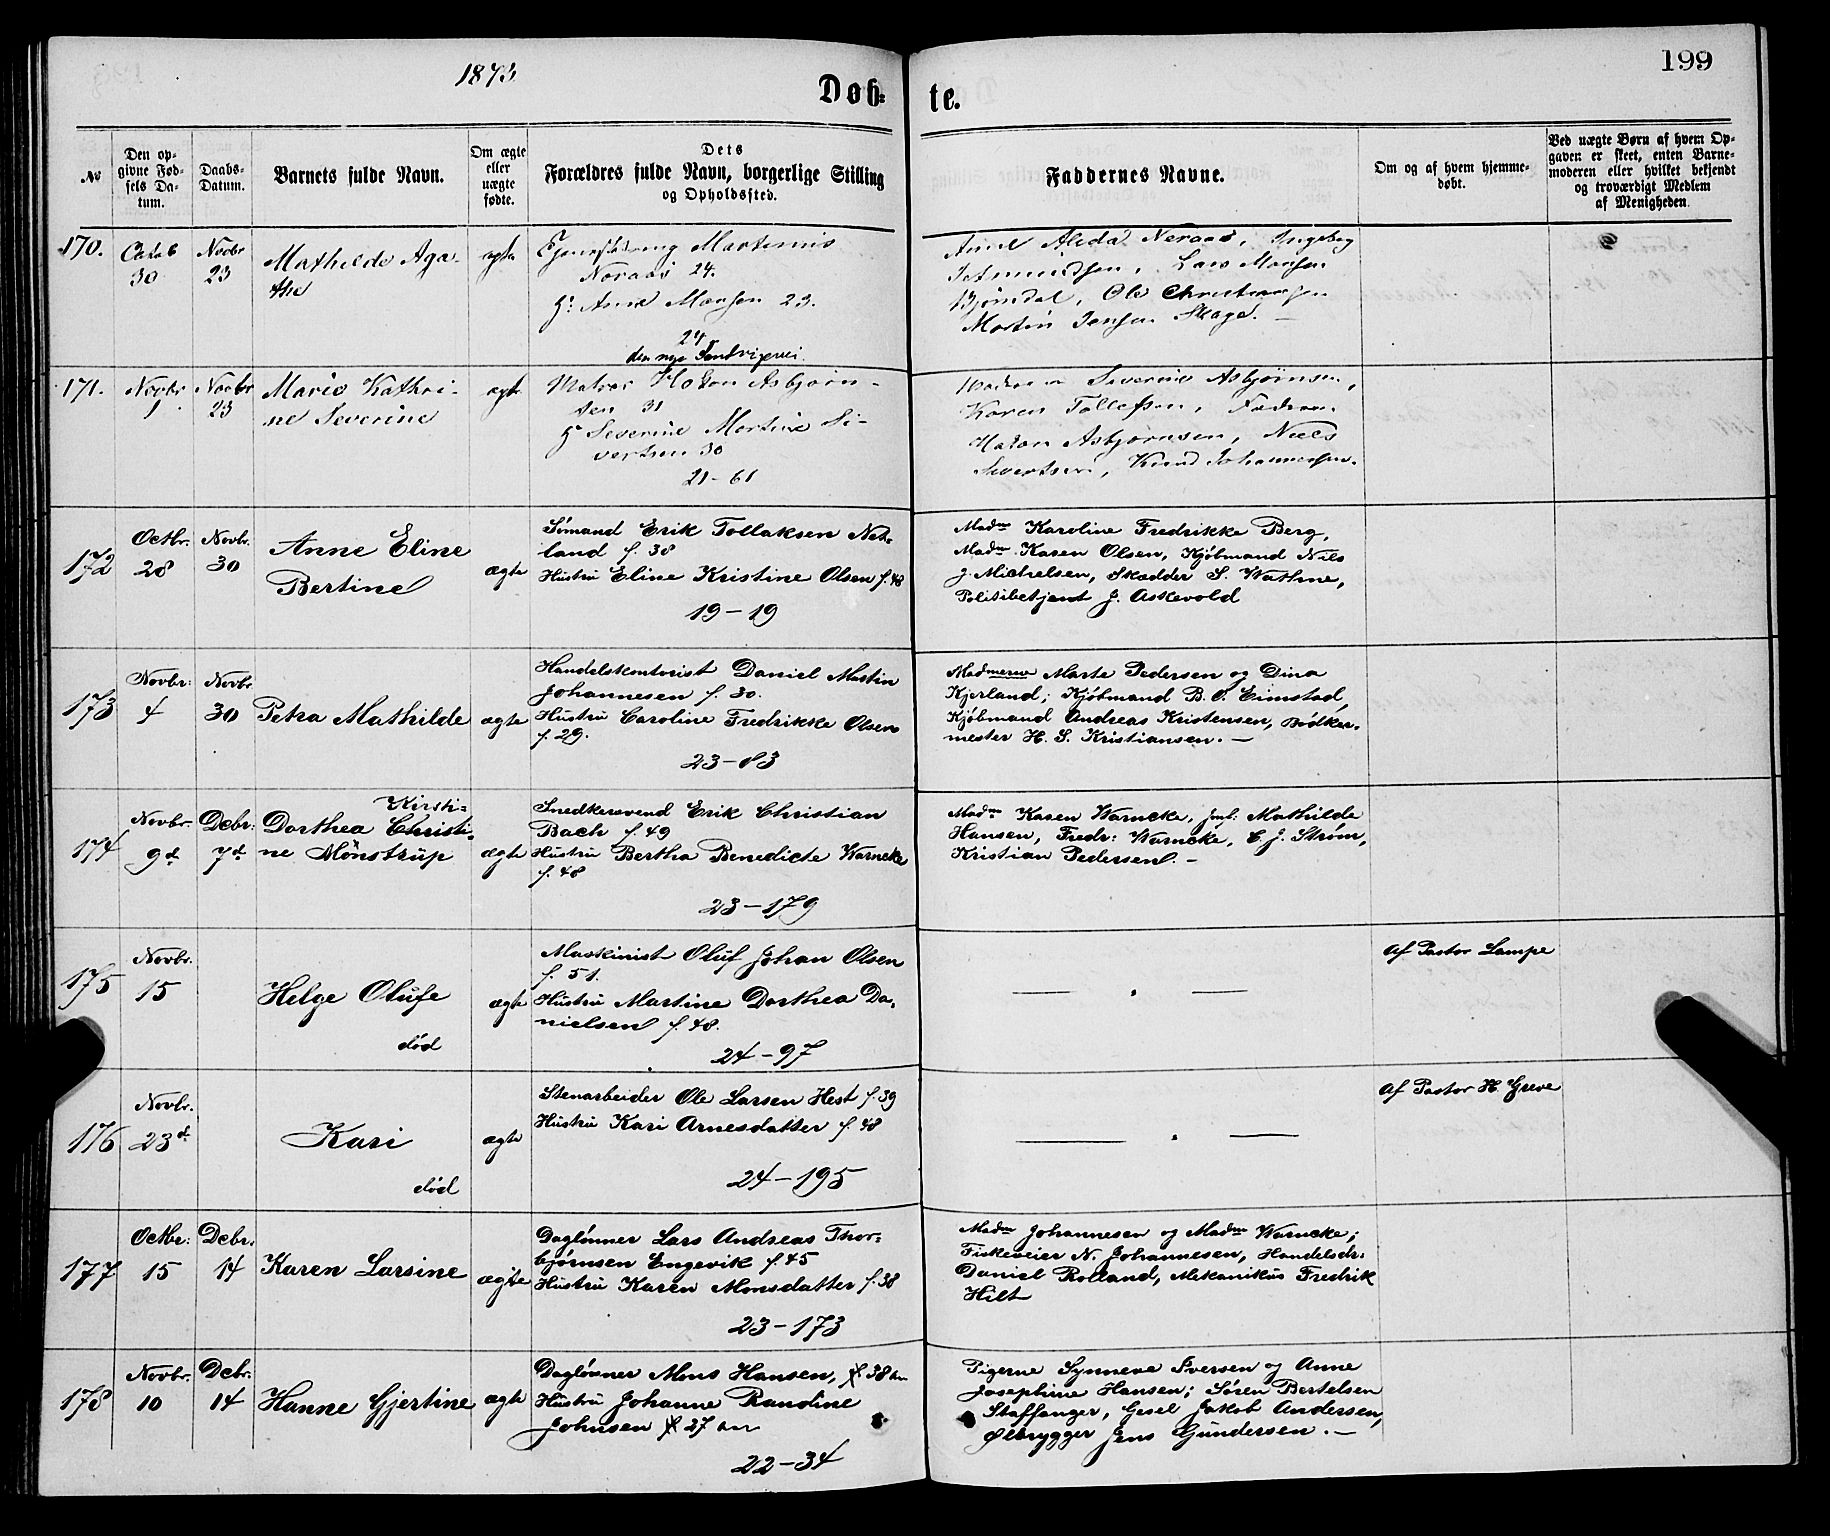 1873
Døb-
te.
199
№
Den op-
givne Fød-
sels Da-
tum.
Daabs-
Datum.
Barnets fulde Navn.
Om ægte
eller
uægte
fødte.
Dets
Forældres fulde Navn, borgerlige Stilling
og Opholdssted.
Faddernes Navne.
Om og af hvem hjemme-
døbt.
Ved uægte Børn af hvem Op-
gaven er skeet, enten Barne-
moderen eller hvilket bekjendt
og troværdigt Medlem
af Menigheden.
170.
Octob
30
Novbr
23
Mathilde Aga-
the
ægte
Martinus
Neraas 24.
H: Anne Monsen 23.
24
den nye Sandvigsvei.
Anne Alida Neraas, Ingeborg
Amundsen, Lars Monsen
Bjørndal, Ole Christiansen
Morten Jensen Skage. —
171.
Novbr
1
Novbr
23
Marie Kathri-
ne Severine
ægte
Matros Hakon Asbjørn-
sen 31
H: Severine Martine Si-
vertsen 30
21-61
Severine Asbjørnsen,
Karen Tollefsen,
Hakon Asbjørnsen, Niels
Sivertsen, Knud Johannessen.
172
Octbr.
28
Novbr.
30
Anne Eline
Bertine
ægte
Sømand Erik Tollaksen Net-
land f. 38
Hustru Eline Kristine Olsen f. 48
19-19
Madm Karoline Fredrikke Berg,
Madm Karen Olsen, Kjøbmand Nils
J. Michelsen, Skrædder S. Wathne,
Politibetjent J. Askevold
173
Novbr:
4
Novbr.
30
Petra Mathilde
ægte
Handelskontorist Daniel Martin
Johannesen f. 30.
Hustru Caroline Fredrikke Olsen
f. 29.
23-83
Madmerne Marte Pedersen og Dina
Kjerland; Kjøbmand B. O. Eimstad,
Kjøbmand Andreas Kristensen, Bødker-
mester H. S. Kristiansen. —
174
Novbr.
9d
Debr:
7d
Kirsti=
Dorthea Christi-
ne Mönstrup
ægte
Snedkersvend Erik Christian
Bach f. 49
Hustru Bertha Benedicte Warncke
f. 48
23-179
Madm Karen Warncke, Jmf: Mathilde
Hansen, Fredr: Warncke, C. J. Strøm,
Kristian Pedersen. —
175
Novbr.
15
Helge Olufe
død
ægte
Maskinist Oluf Johan Olsen
f. 51.
Hustru Martine Dorthea Da-
nielsen f. 48.
24-97
— . —
Af Pastor Lampe
176
Novbr.
23d
Kari
død
ægte
Stenarbeider Ole Larsen Hest f. 39
Hustru Kari Arnesdatter f. 48
24-195
— . —
Af Pastor H Greve
177
Octbr:
15
Debr:
14
Karen Larsine
ægte
Dagløнner Lars Andreas Thor-
bjørnsen Engevik f. 45
Hustru Karen Monsdatter f. 38
23-173
Madm Johannesen og Madm Warncke;
Fiskeveier N. Johannesen, Handelsdr:
Daniel Rolland, Mekanikus Fredrik
Hilt
178
Novbr.
10
Debr.
14
Hanne Gjertine
ægte
Dagløнner Mons Hansen, f 38 år
Hustru Johanne Randine
Johnsen f 27 år
22-34
Pigerne Synneve Iversen og Anne
Josephine Hansen; Søren Bertelsen
Staffanger, Gesel Jakob Andersen,
Ølbrygger Jens Gundersen. —